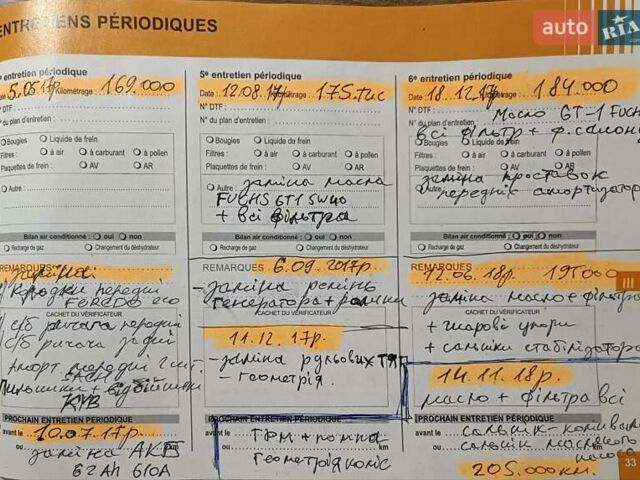 ENTRETIENS PÉRIODIQUES
auto RIA
entretien périodique
Date 5.05.17р Kilométrage : 169.000
N° DTF :
N° du plan d'entretien :
Bougies Liquide de frein
Filtres : à air à carburant à pollen
Plaquettes de frein : AV AR
Autre :
Bilan air conditionné : oui non
Recharge de gaz Changement du déshydrateur
REMARQUES заміна
колодки передні
FERODO eco
CACHET DU VÉRIFICATEUR
с/б ричага передні
с/б ричага задні
Аморт. передні 2 шт.
SACHS
Пильники + відбійники
KYB
PROCHAIN ENTRETIEN PÉRIODIQUE
avant le 10.07.17р.
ou km
заміна АКБ
62Ah 610A
5e entretien périodique
Date : 12.08.17р Kilométrage : 175.тис
N° DTF :
N° du plan d'entretien :
Bougies Liquide de frein
Filtres : à air à carburant à pollen
Plaquettes de frein : AV AR
Autre : заміна масла
FUCHS GT1 5W40
+ всі фільтра
Bilan air conditionné : oui non
Recharge de gaz Changement du déshydrateur
REMARQUES 6.09.2017р.
- заміна ремінь
генератора + ролики
CACHET DU VÉRIFICATEUR
11.12.17р.
- заміна рульових тяг
- геометрія.
PROCHAIN ENTRETIEN PÉRIODIQUE
avant le
ou km
ГРМ + помпа
геометрія коліс
6e entretien périodique
Date : 18.12.17р Kilométrage : 184.000
N° DTF : Масло GT-1 FUCHS
N° du plan d'entretien :
всі фільтр + ф.салона
Bougies Liquide de frein
Filtres : à air à carburant à pollen
Plaquettes de frein : AV AR
заміна проставок
Autre : передніх амортизатор
Bilan air conditionné : oui non
Recharge de gaz Changement du déshydrateur
REMARQUES 12.06.18р. 195000
заміна масло + фільтри
CACHET DU VÉRIFICATEUR
+ шарові упори
+ сальніки стабілізатора
14.11.18р.
масло + фільтра всі
PROCHAIN ENTRETIEN PÉRIODIQUE
avant le сальнік
ou km
сальнік масляного
насоса
205.000км.
III
33